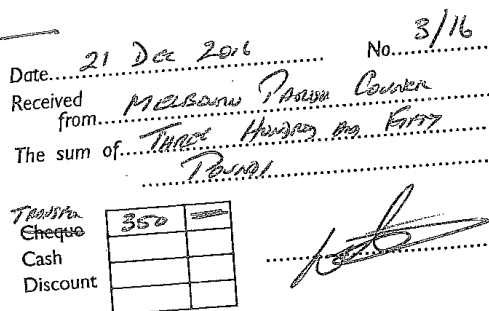 Date 21 Dec 2016 No. 3/16
Received from MELBOURN PARISH COUNCIL
The sum of THREE HUNDRED AND FIFTY
POUNDS
TRANSFER
Cheque 350 =
Cash
Discount